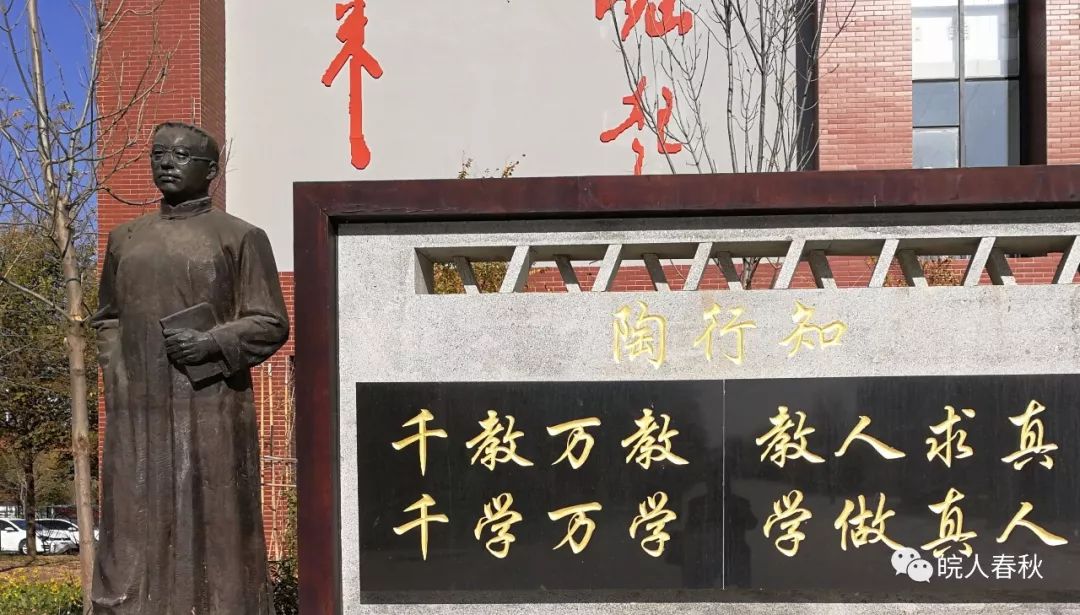 陶行知
千教万教 教人求真
千学万学 学做真人
皖人春秋